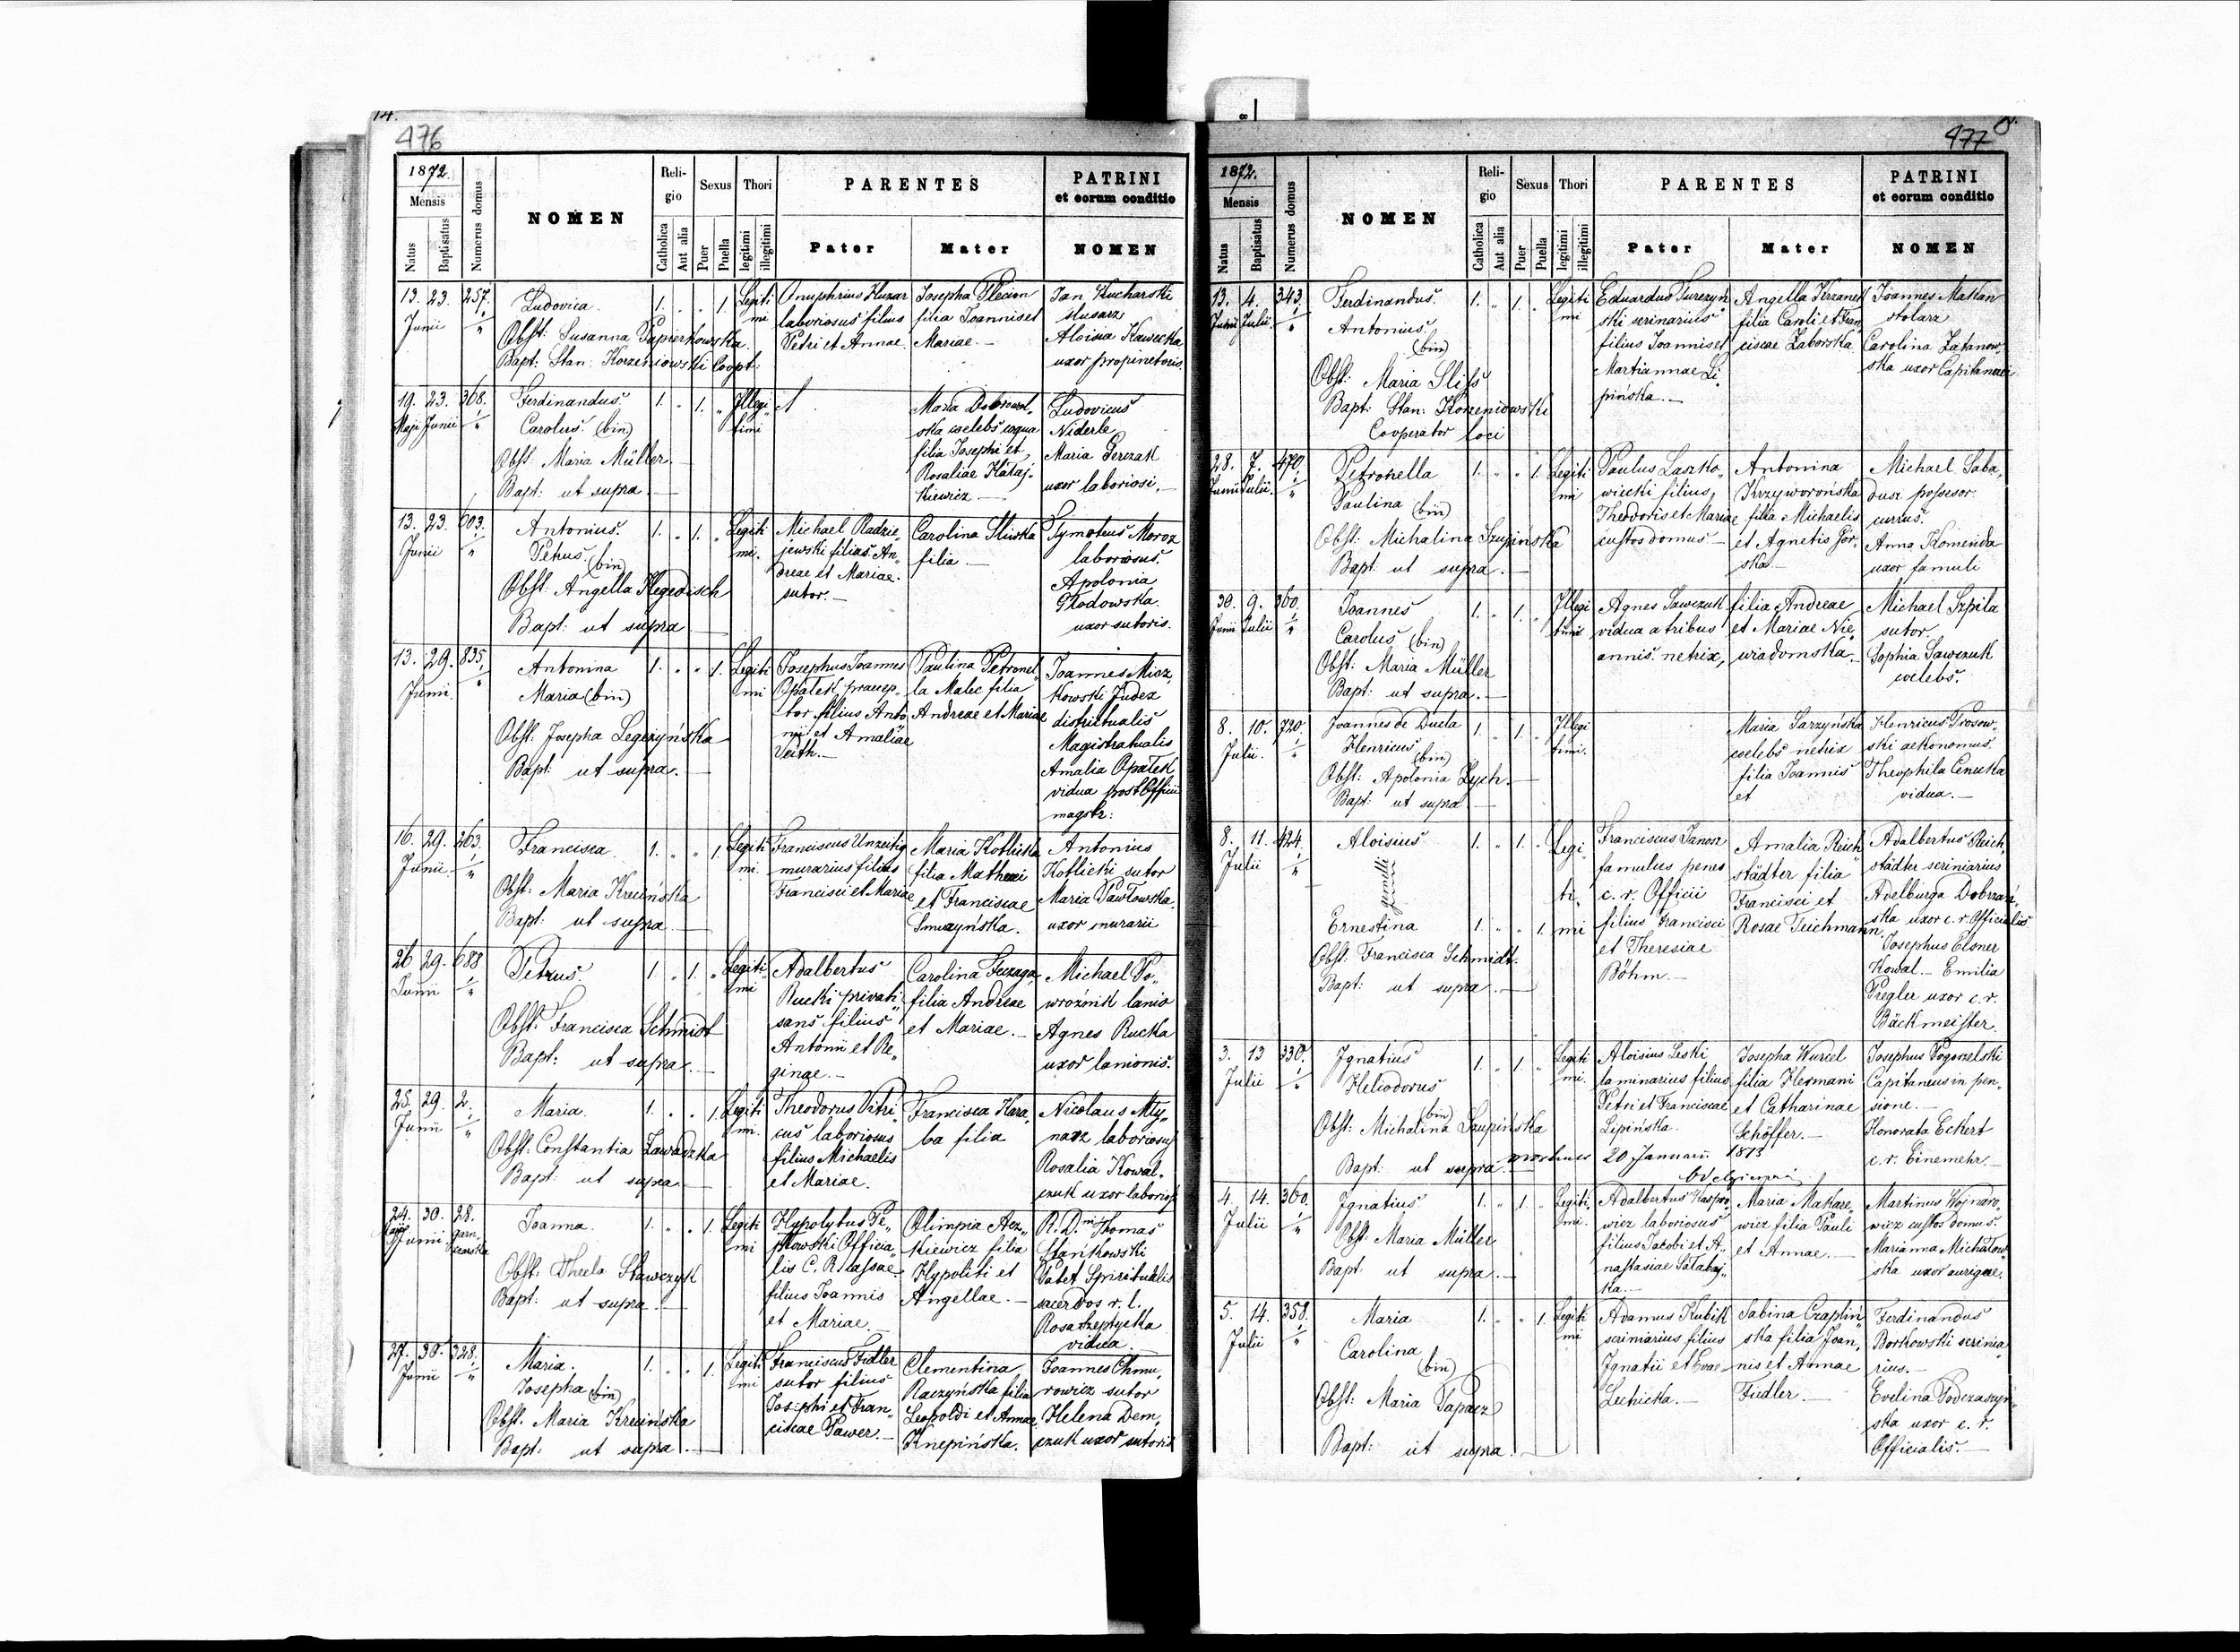 14.
476
1872.
Mensis
Natus
Baptisatus
Numerus domus
NOMEN
Reli-
gio
Catholica
Aut alia
Sexus
Puer
Puella
Thori
legitimi
illegitimi
PARENTES
Pater
Mater
PATRINI
et eorum conditio
NOMEN
13. 23. 257.
Junii
Ludovica.
Obst: Susanna Papierkowska.
Bapt: Stan: Korzeniowski Coopt:
1. 1.
Legiti
mi
Onuphrius Huzar
laboriosus filius
Petri et Annae.
Josepha Plecion
filia Joannis et
Mariae.
Jan Kucharski
slusarz
Aloisia Kawecka
uxor propinatoris.
19. 23. 368.
Maji Junii
Ferdinandus
Carolus. (bin)
Obst: Maria Müller.
Bapt: ut supra.
1. 1.
Illegi
timi
Maria
ska caelebs coqua
filia Josephi et
Rosaliae Kataj-
kiewicz
Ludovicus
Niderle
Maria Gerczak
uxor laboriosi.
13. 23. 603.
Junii
Antonius.
Petrus. (bin)
Obst: Angella Hegedisch
Bapt: ut supra
1. 1.
Legiti
mi.
Michael Radzie-
jewski filius An-
dreae et Mariae.
sutor.
Carolina Sliwka
filia.
Tymoteus Moroz
laboriosus.
Apolonia
Głodowska.
uxor sutoris.
13. 29. 835.
Junii.
Antonina
Maria (bin)
Obst: Josepha Legezyńska
Bapt: ut supra.
1. 1.
Legiti
mi
Josephus Joannes
Opałek praecep-
tor filius Anto-
nii et Amaliae
Veith.
Paulina Petronel-
la Malec filia
Andreae et Mariae
Joannes Micz-
kowski Judex
districtualis
Magistratualis
Amalia Opałek
vidua post Offici
magstr:
16. 29. 263.
Junii.
Francisca.
Obst: Maria Kruńska
Bapt: ut supra.
1. 1.
Legiti
mi.
Franciscus Unzeitig
murarius filius
Francisci et Mariae
Maria Kotlicka
filia Mathaei
et Franciscae
Smuzyńska.
Antonius
Kotlicki sutor
Maria Pawłowska.
uxor murarii
26 29. 688
Junii
Petrus.
Obst: Francisca Schmidt
Bapt: ut supra.
1. 1.
Legiti
mi
Adalbertus
Rucki privati-
sans filius
Antonii et Re-
ginae.
Carolina
filia Andreae
et Mariae.
Michael Po-
wroźnik lanio
Agnes Rucka
uxor lanionis.
25. 29. 2.
Junii
Maria.
Obst: Constantia Zawadzka
Bapt: ut supra
1. 1.
Legiti
mi.
Theodorus Vitri-
cus laboriosus
filius Michaelis
et Mariae.
Francisca Kara-
ba filia
Nicolaus Mły-
narz laboriosus
Rosalia Kowal-
czuk uxor laborios
24. 30. 28.
Junii
Joanna.
Obst: Thecla Stawczyk
Bapt: ut supra.
1. 1.
Legiti
mi
Hypolytus
Officia-
lis C. R. Cassae
filius Joannis
et Mariae.
Olimpia Acz-
kiewicz filia
Hypoliti et
Angellae.
R. D. Thomas
Stańkowski
Pater Spiritualis
sacerdos r. l.
Rosa Szeptycka
vidua.
27. 30. 328.
Junii
Maria.
Josepha (bin)
Obst: Maria Kruińska
Bapt: ut supra.
1. 1.
Legiti
mi
Franciscus Fidler
sutor filius
Josephi et Fran-
ciscae Pawer.
Clementina
Raczyńska filia
Leopoldi et Annae
Knepińska.
Joannes Chmu-
rowicz sutor
Helena Dem-
czuk uxor sutoris
477
1872.
Mensis
Natus
Baptisatus
Numerus domus
NOMEN
Reli-
gio
Catholica
Aut alia
Sexus
Puer
Puella
Thori
legitimi
illegitimi
PARENTES
Pater
Mater
PATRINI
et eorum conditio
NOMEN
13. 4. 343.
Junii Julii.
Ferdinandus.
Antonius.
(bin)
Obst: Maria Sliss
Bapt: Stan: Korzeniowski
Cooperator loci
1. 1.
Legiti
mi
Eduardus Turczyń-
ski scrinarius
filius Joannis et
Martiannae Li-
pińska.
Angella Krzanek
filia Caroli et Fran-
ciscae Zaborska.
Joannes Makan
stolarz
Carolina Zatanow-
ska uxor Capitanei
28. 7. 470.
Junii Julii.
Petronella
Paulina (bin)
Obst: Michalina Szupińska
Bapt. ut supra.
1. 1.
Legiti
mi
Paulus Laszko-
wiecki filius
Theodoris et Mariae
custos domus
Antonina
Krzyworońska
filia Michaelis
et Agnetis Gór-
ska.
Michael Saba-
dusz possesor
currus.
Anna Komenda
uxor famuli
30. 9. 360.
Junii Julii
Joannes
Carolus (bin)
Obst: Maria Müller
Bapt: ut supra.
1. 1.
Illegi
timi
Agnes Sawczuk
vidua a tribus
annis. netrix,
filia Andreae
et Mariae Nie-
wiadomska.
Michael Szpila
sutor.
Sophia Sawczuk
caelebs.
8. 10. 720.
Julii.
Joannes de Ducla
Henricus
(bin)
Obst: Apolonia Zych.
Bapt: ut supra
1. 1.
Illegi
timi.
Maria Sarzyńska
caelebs netrix
filia Joannis
et
Henricus Trosow-
ski aekonomus.
Theophila Cenecka
vidua.
8. 11. 424.
Julii
Aloisius
gemelli
Ernestina
Obst: Francisca Schmidt.
Bapt: ut supra.
1. 1.
1. 1.
Legi
ti-
mi
Franciscus Janosz
famulus penes
c. r. Officii
filius Francisci
et Theresiae
Böhm.
Amalia Reich-
städter filia
Francisci et
Rosae Teichmann.
Adalbertus Reich-
städter scriniarius
Adelburga Dobrzań-
ska uxor c. r. Officialis
Josephus Eloner
Kowal. Emilia
Pregler uxor c. r.
Bäckmeister.
3. 13 330.
Julii
Ignatius
Heliodorus
(bin)
Obst: Michalina Szupińska
Bapt: ut supra.
1. 1.
Legiti
mi.
Aloisius Leski
laminarius filius
Petri et Franciscae
Lipińska.
Josepha Wurcel
filia Hermani
et Catharinae
Schöffer.
Josephus Pogorzelski
Capitaneus in pen-
sione.
Honorata Eckert
c. r. Einemehr.
mortuus 20 Januarii 1873
4. 14. 360.
Julii
Ignatius.
Obst: Maria Müller
Bapt: ut supra.
1. 1.
Legiti
mi.
Adalbertus Kaspro-
wicz laboriosus
filius Jacobi et A-
nastasiae Sałabaj-
ka.
Maria Makare-
wicz filia Pauli
et Annae.
Martinus Wojnaro-
wicz custos domus.
Marianna Michałow-
ska uxor aurigae.
5. 14. 358.
Julii
Maria
Carolina
(bin)
Obst: Maria Papacz
Bapt: ut supra.
1. 1.
Legiti
mi
Adamus Kubik
scriniarius filius
Ignatii et Evae
Lechicka.
Sabina Czapliń-
ska filia Joan-
nis et Annae
Fiedler
Ferdinandus
Borkowski scrinia-
rius.
Evelina Podczaszyń-
ska uxor c. r.
Officialis.